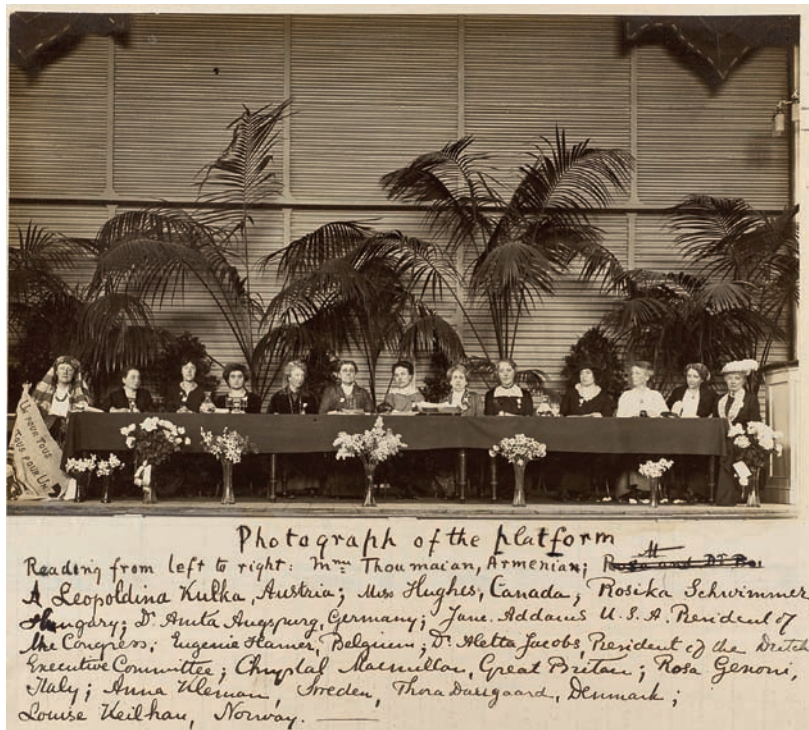 Un pour tous
Tous pour un
Photograph of the platform
Reading from left to right: Mme Thoumaian, Armenian;
A Leopoldina Kulka, Austria; Miss Hughes, Canada; Rosika Schwimmer
Hungary; Dr Anita Augspurg, Germany; Jane Addams U.S.A. President of
the Congress; Eugenie Hamer, Belgium; Dr Aletta Jacobs, President of the Dutch
Executive Committee; Chrystal Macmillan, Great Britan; Rosa Genoni,
Italy; Anna Kleman, Sweden, Thora Daugaard, Denmark;
Louise Keilhau, Norway.